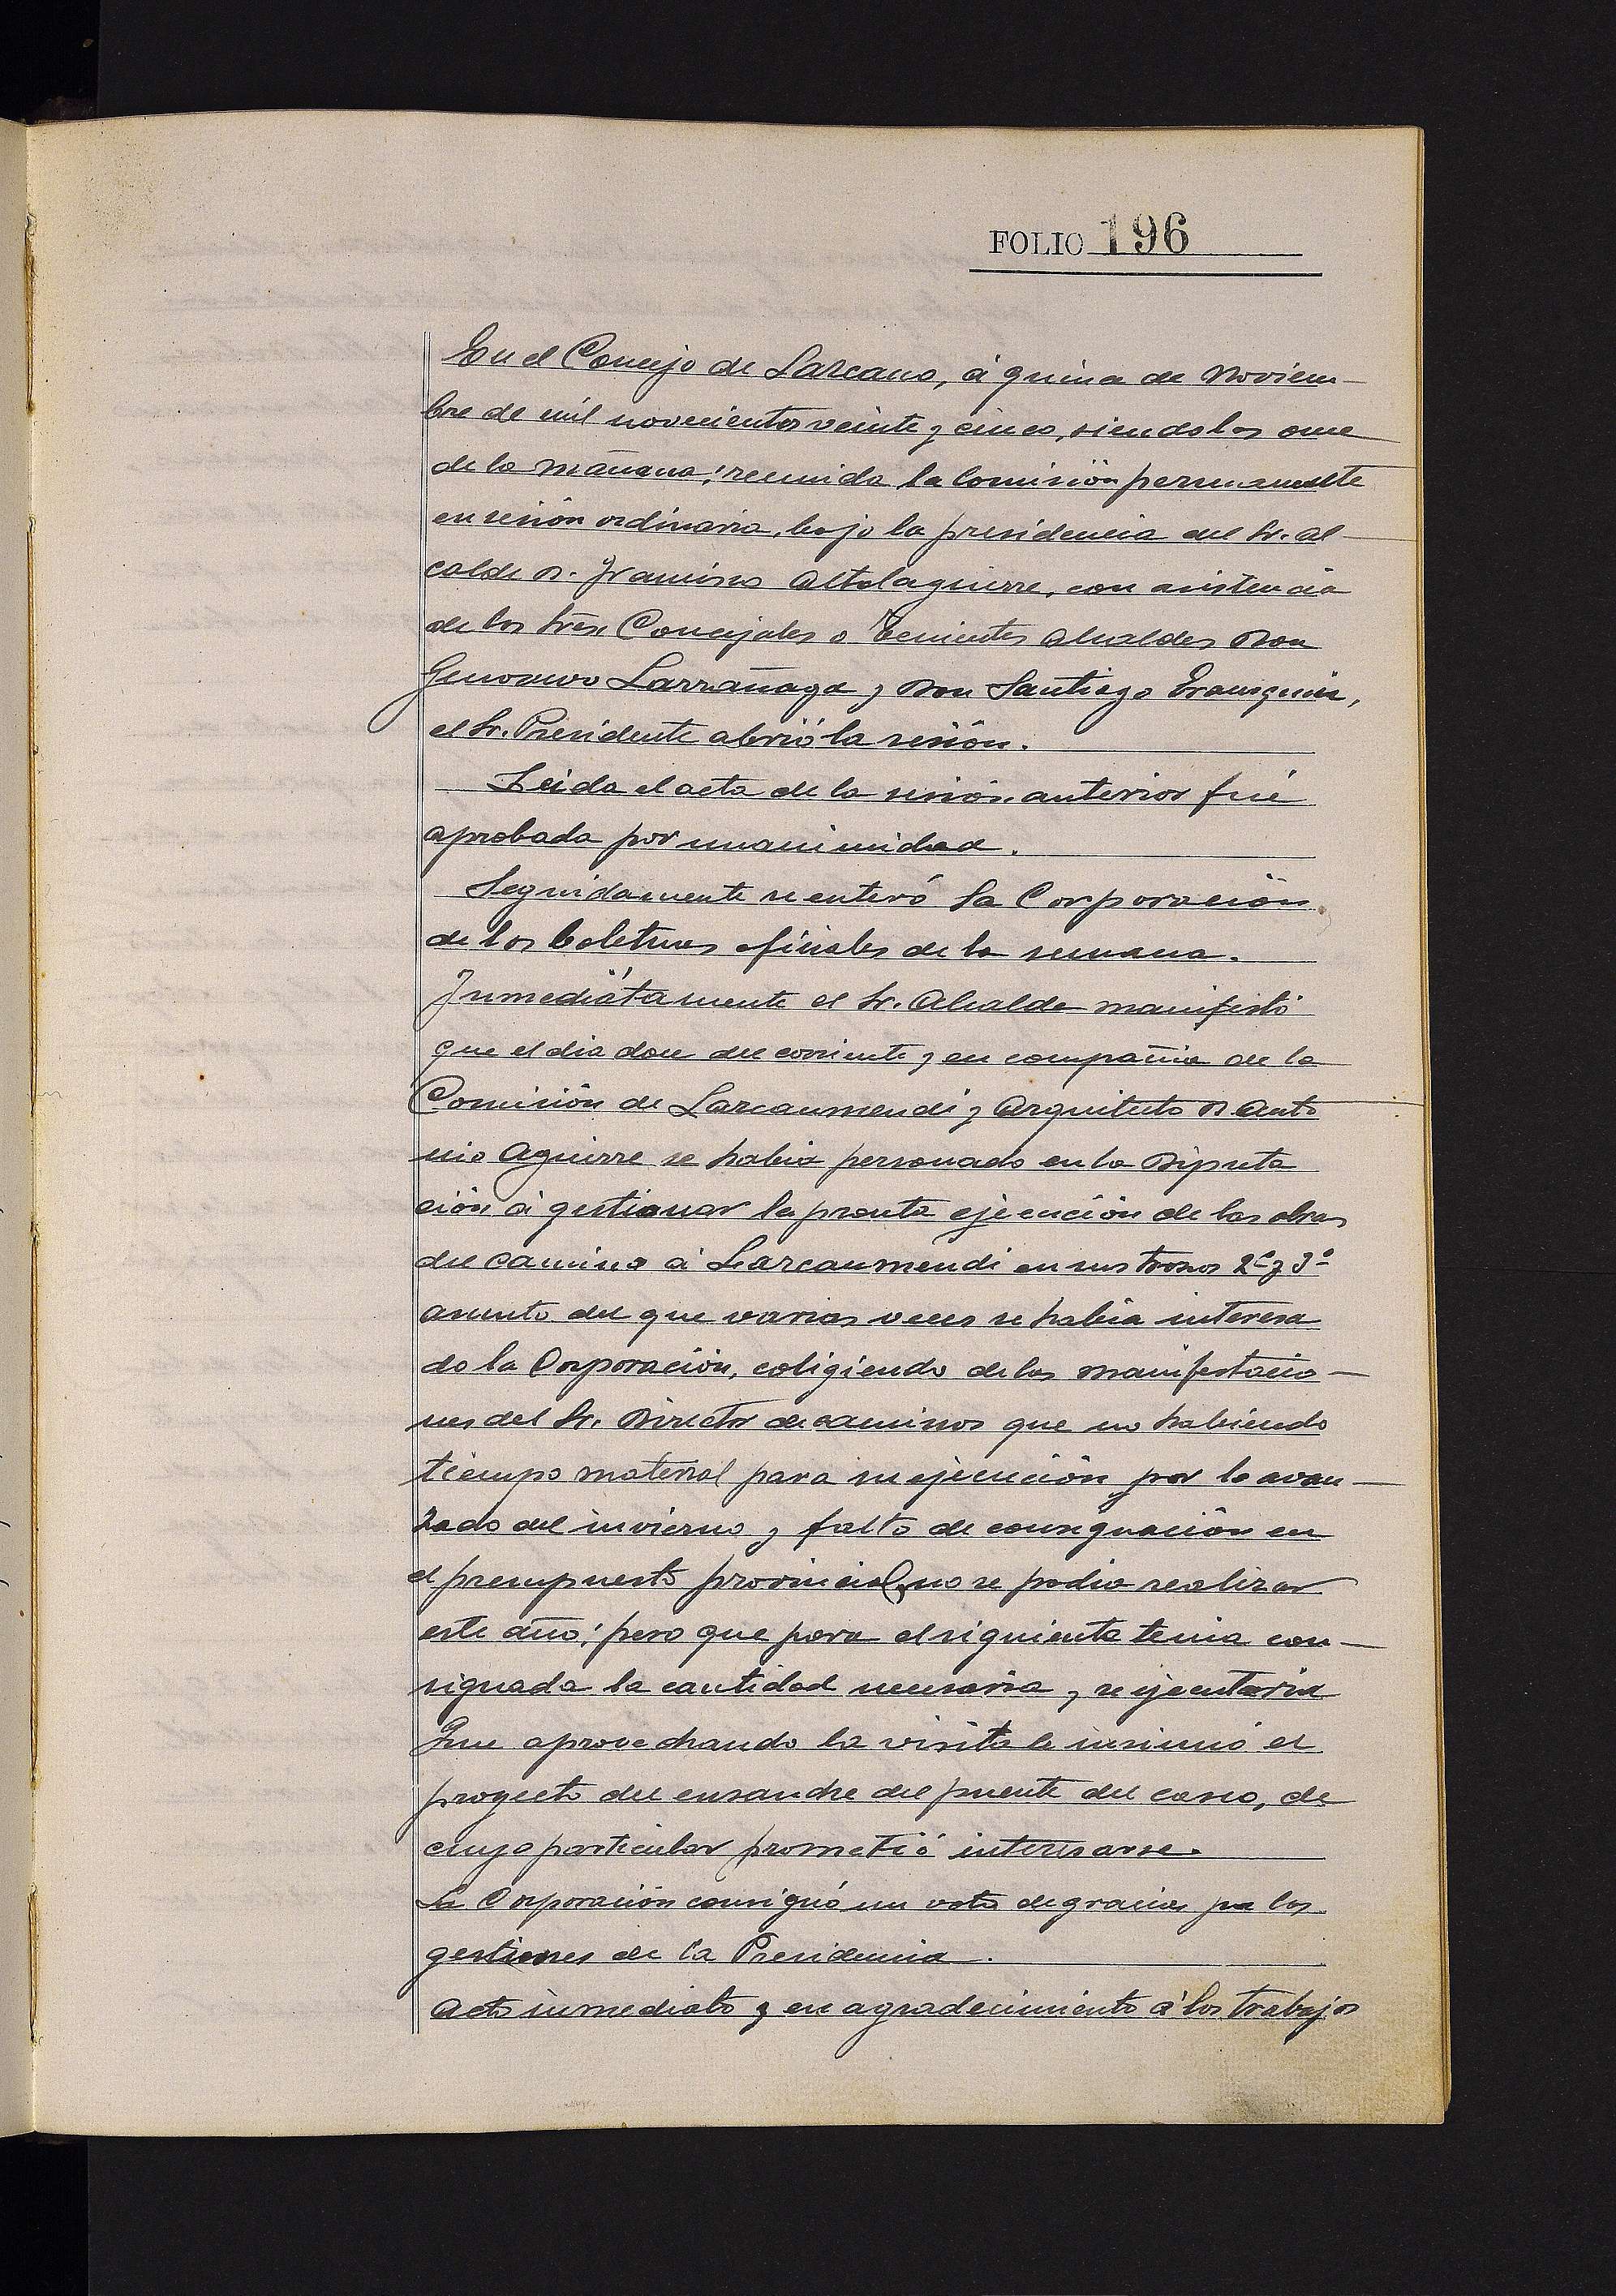 FOLIO 196
En el Concejo de Lazcano, á quince de Noviem-
bre de mil novecientos veinte y cinco, siendo las once
de la mañana; reunida la Comisión permanente
en sesión ordinaria, bajo la presidencia del Sr. Al-
calde D. Francisco Altolaguirre, con asistencia
de los Sres. Concejales o Tenientes Alcaldes Don
Genovevo Larrañaga y Don Santiago Erausquin,
el Sr. Presidente abrió la sesión.
Leida el acta de la sesión anterior fué
aprobada por unanimidad.
Seguidamente se enteró la Corporación
de los boletines oficiales de la semana.
Inmediatamente el Sr. Alcalde manifestó
que el dia doce del corriente y en compañia de la
Comisión de Lazcaumendi y Arquitecto D. Anto
nio Aguirre se habia personado en la Diputa
ción á gestionar la pronta ejecución de las obras
del camino á Lazcaumendi en sus trozos 2º y 3º
asunto del que varias veces se habia interesa
do la Corporación, coligiendo de las manifestacio-
nes del Sr. Director de caminos que no habiendo
tiempo material para su ejecución por lo avan-
zado del invierno y falta de consignación en
el presupuesto provincial, no se podia realizar
este año; pero que para el siguiente tenia con-
signada la cantidad necesaria y se ejecutaria
Que aprovechando la visita le insinuó el
proyecto del ensanche del puente del casco, de
cuyo particular prometió interesarse.
La Corporación consignó un voto de gracias por las
gestiones de la Presidencia.
Acto inmediato y en agradecimiento á los trabajos